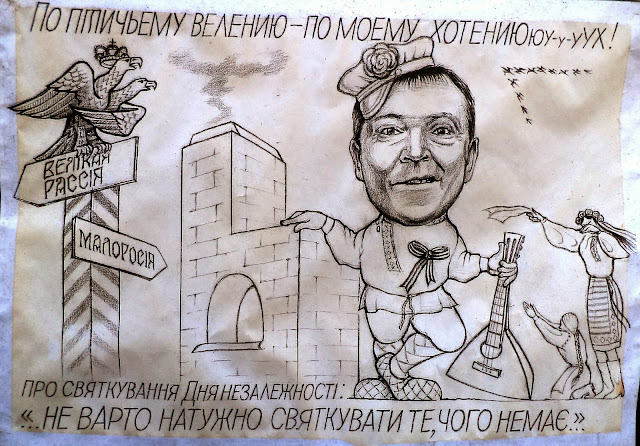 По птичьему велению – по моему хотениююу-у-уух!
Великая
Рассія
Малоросія
про святкування Дня незалежності:
«...не варто натужно святкувати те, чого немає...»